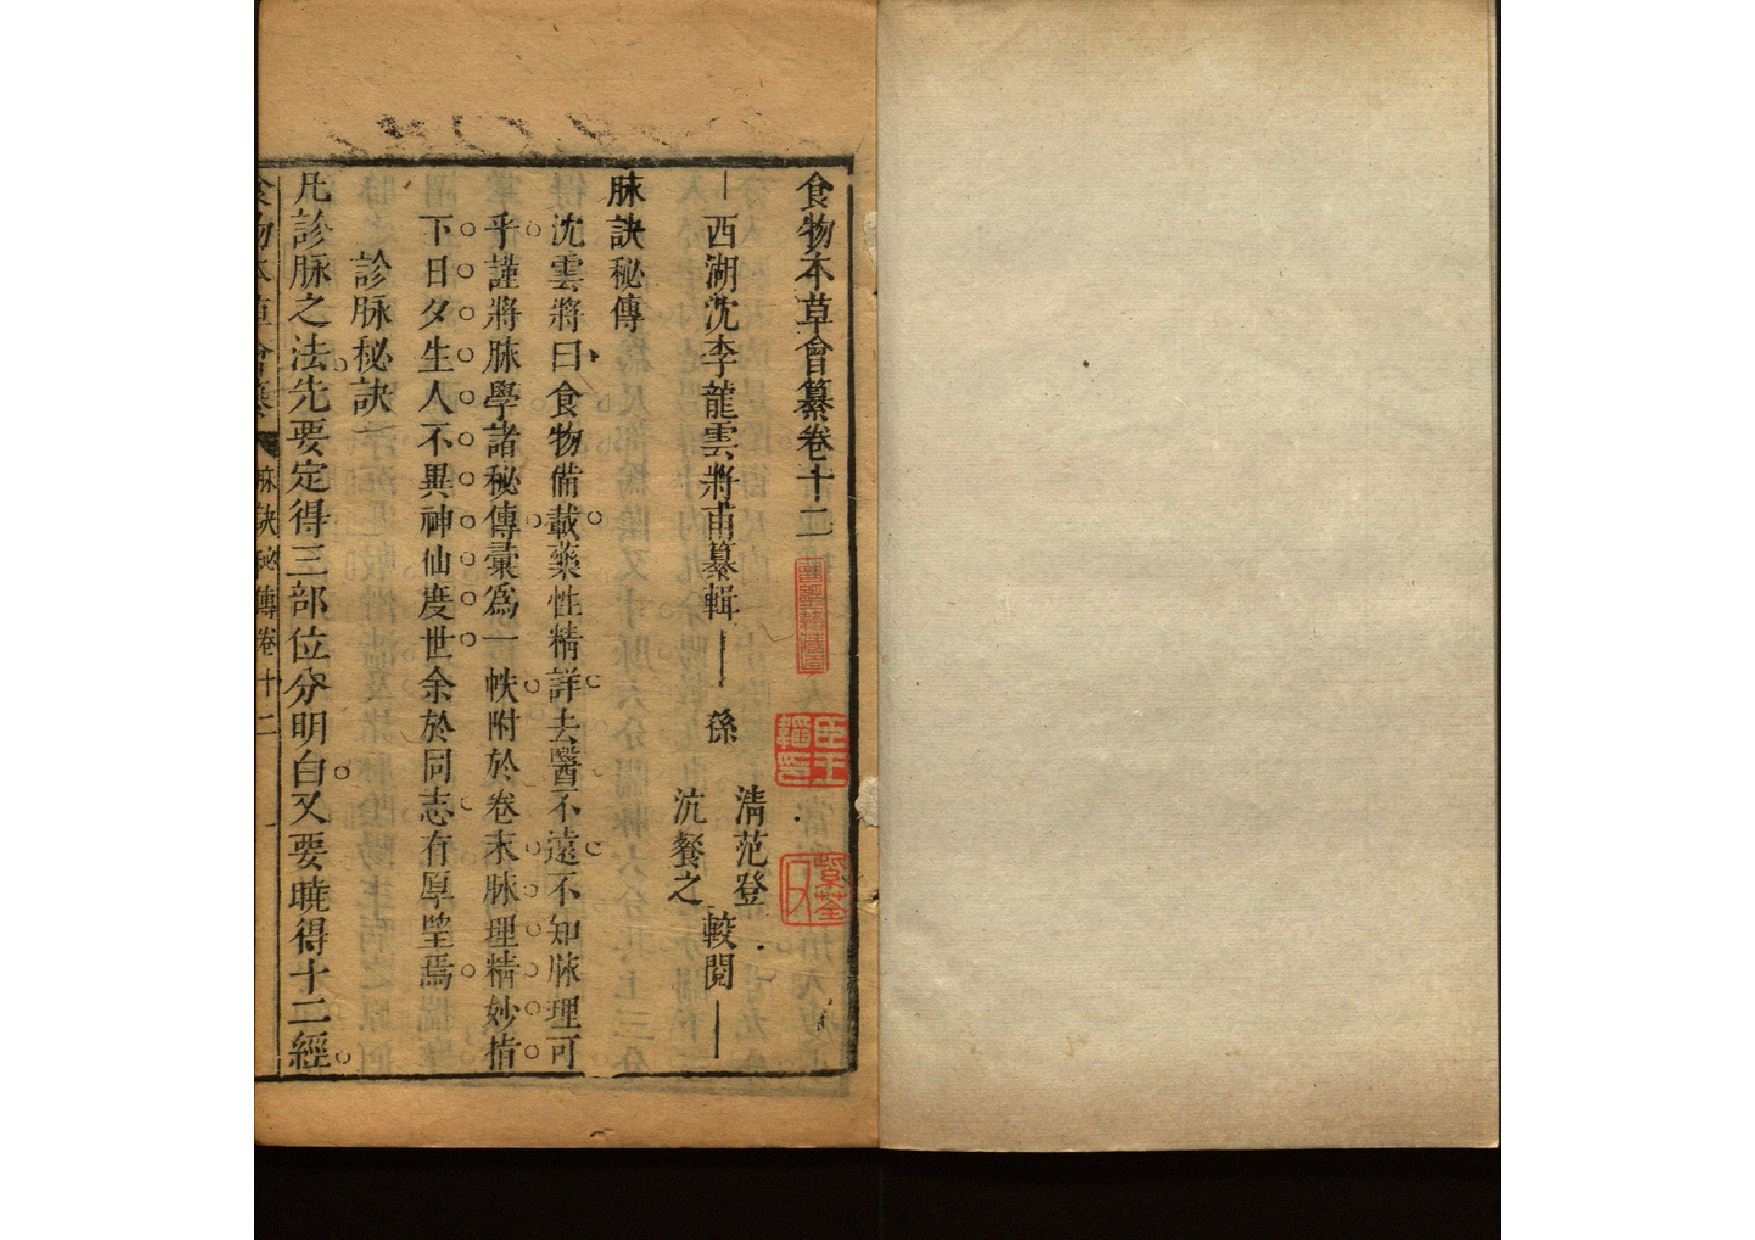 食物本草會纂卷十二
西湖沈李龍雲將甫纂輯 孫 清范登 沆餐之 較閱
脉訣秘傳
沈雲將曰食物備載藥性精詳去醫不遠不知脉理可
乎謹將脉學諸秘傳彙爲一帙附於卷末脈理精妙指
下日夕生人不異神仙度世余於同志有厚望焉
診脈秘訣
凡診脈之法先要定得三部位分明白又要曉得十二經
食物本草會纂 脉訣秘傳卷十二 一